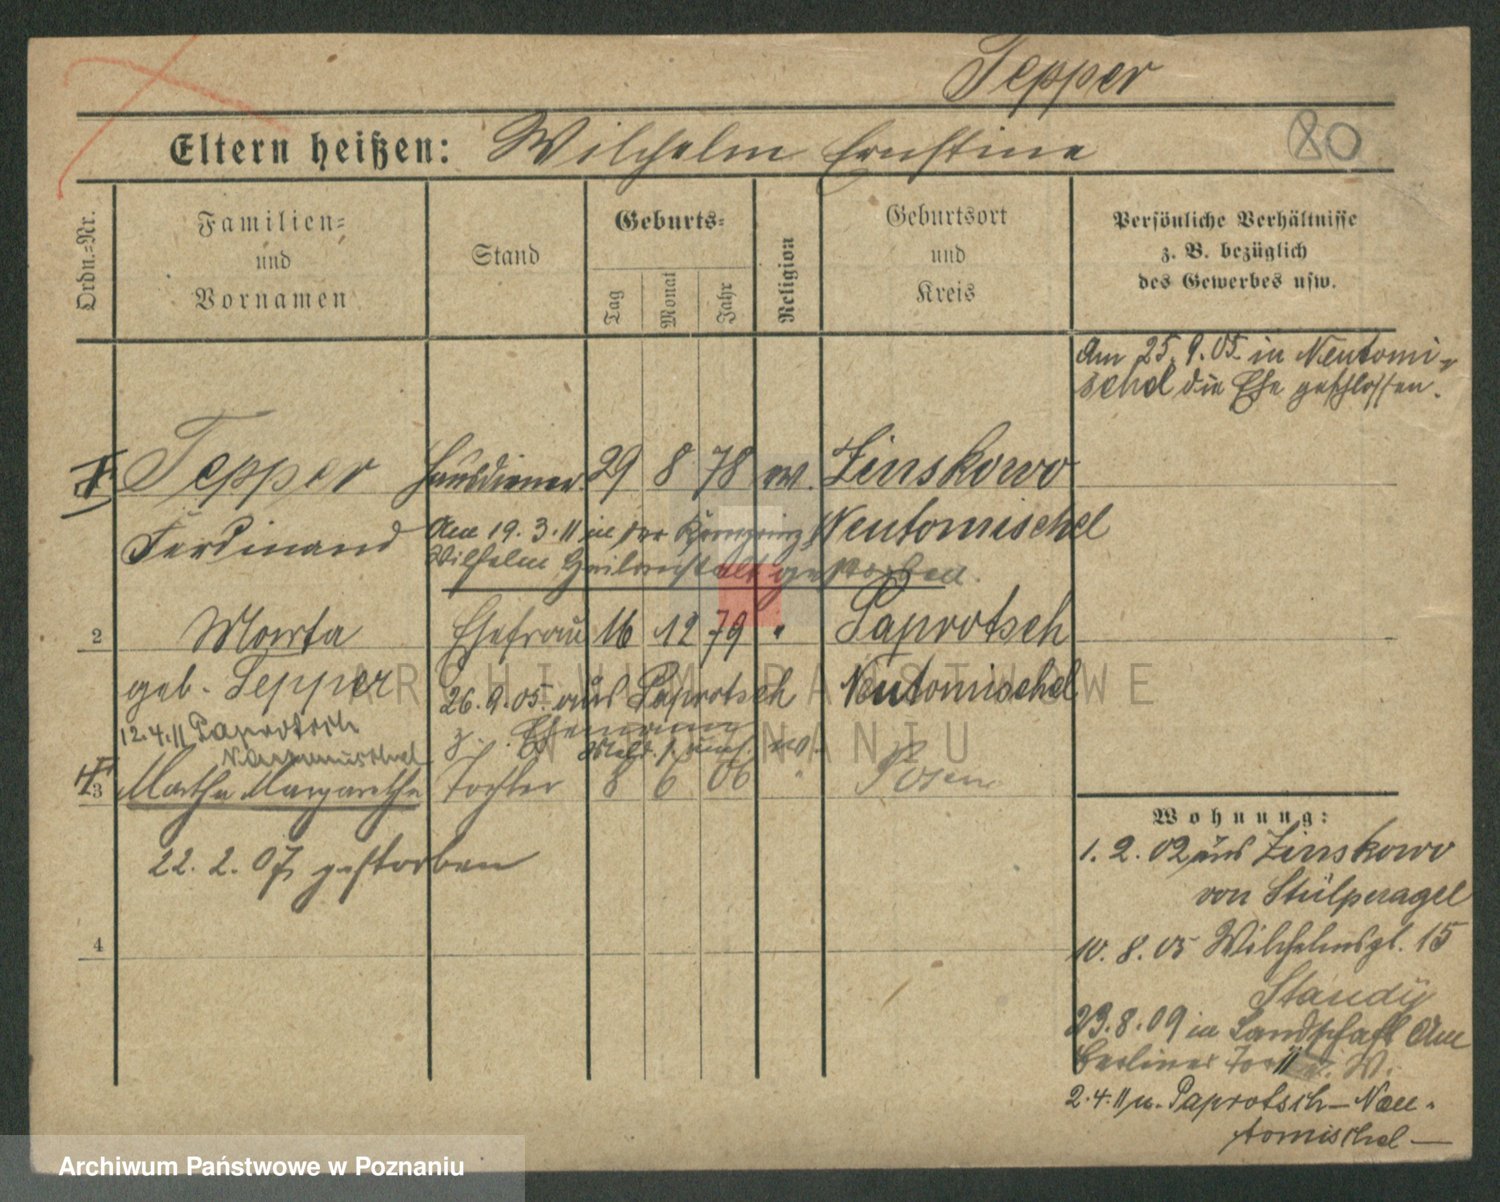 Tepper
Eltern heißen: Wilhelm Ernstine
80
Ordn.-Nr.
Familien-
und
Vornamen
Stand
Geburts-
Tag
Monat
Jahr
Religion
Geburtsort
und
Kreis
Persönliche Verhältnisse
z. B. bezüglich
des Gewerbes usw.
Am 25.9.05. in Neutomi-
schel die Ehe geschlossen.
Tepper Hausdiener 29 8 78 ev. Zinskowo
Ferdinand Neutomischel
Am 19.3.11 in der
Wilhelm Heilanstalt gestorben.
2 Marta Ehefrau 16 12 79 " Paprotsch
geb. Tepper Neutomischel
26.9.05. aus Paprotsch
z. Ehemann
12.4.11 Paprotsch
Neutomischel
3 Martha Margarethe Tochter 8 6 06 Posen
22.2.07 gestorben
4
Wohnung:
1.2.02 aus Zinskowo
von Stülpnagel
10.8.05 Wilhelmspl. 15
Standy
23.8.09 in Landschaft Am
Berliner Tor
2.4.11 n. Paprotsch - Neu-
tomischel -
ARCHIWUM PAŃSTWOWE
W POZNANIU
Archiwum Państwowe w Poznaniu